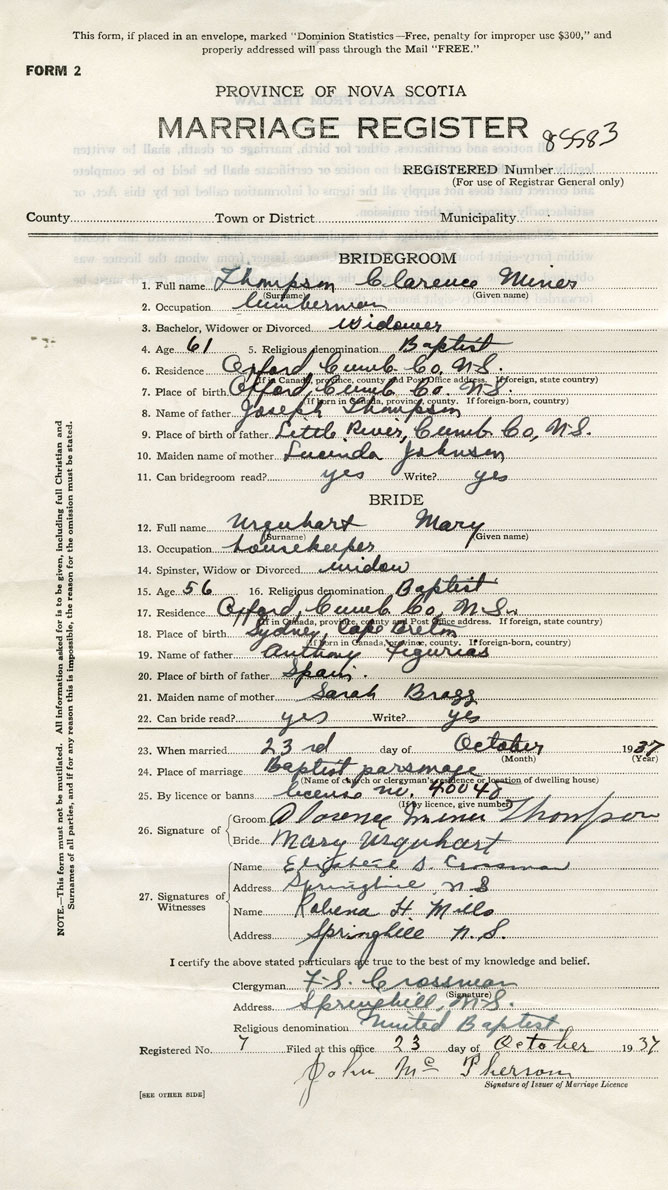 This form, if placed in an envelope, marked "Dominion Statistics—Free, penalty for improper use $300," and
properly addressed will pass through the Mail "FREE."
FORM 2
PROVINCE OF NOVA SCOTIA
MARRIAGE REGISTER 85583
REGISTERED Number
(For use of Registrar General only)
County Town or District Municipality
BRIDEGROOM
1. Full name Thompson Clarence Miner
(Surname) (Given name)
2. Occupation lumberman
3. Bachelor, Widower or Divorced widower
4. Age 61 5. Religious denomination Baptist
6. Residence Oxford, Cumb. Co, N.S.
(If in Canada, province, county and Post Office address. If foreign, state country)
7. Place of birth Oxford, Cumb Co. N.S.
(If born in Canada, province, county. If foreign-born, country)
8. Name of father Joseph Thompson
9. Place of birth of father Little River, Cumb Co, N.S.
10. Maiden name of mother Lucinda Johnson
11. Can bridegroom read? yes Write? yes
BRIDE
12. Full name Urquhart Mary
(Surname) (Given name)
13. Occupation housekeeper
14. Spinster, Widow or Divorced widow
15. Age 56 16. Religious denomination Baptist
17. Residence Oxford, Cumb Co, N.S.
(If in Canada, province, county and Post Office address. If foreign, state country)
18. Place of birth Sydney, Cape Breton
(If born in Canada, province, county. If foreign-born, country)
19. Name of father Anthony Figurias
20. Place of birth of father Spain.
21. Maiden name of mother Sarah Bragg
22. Can bride read? yes Write? yes
23. When married 23rd day of October 1937
(Month) (Year)
24. Place of marriage Baptist parsonage
(Name of church or clergyman's residence or location of dwelling house)
25. By licence or banns license no. 40040
(If by licence, give number)
26. Signature of Groom Clarence Miner Thompson
Bride Mary Urquhart
27. Signatures of Witnesses
Name Elizabeth S. Crossman
Address Springhill, N S
Name Robena H. Mills
Address Springhill N.S.
I certify the above stated particulars are true to the best of my knowledge and belief.
Clergyman F. S. Crossman
(Signature)
Address Springhill, N.S.
Religious denomination United Baptist.
Registered No. 7 Filed at this office 23 day of October 1937
John McPherson
Signature of Issuer of Marriage Licence
[SEE OTHER SIDE]
NOTE.—This form must not be mutilated. All information asked for is to be given, including full Christian and
Surnames of all parties, and if for any reason this is impossible, the reason for the omission must be stated.